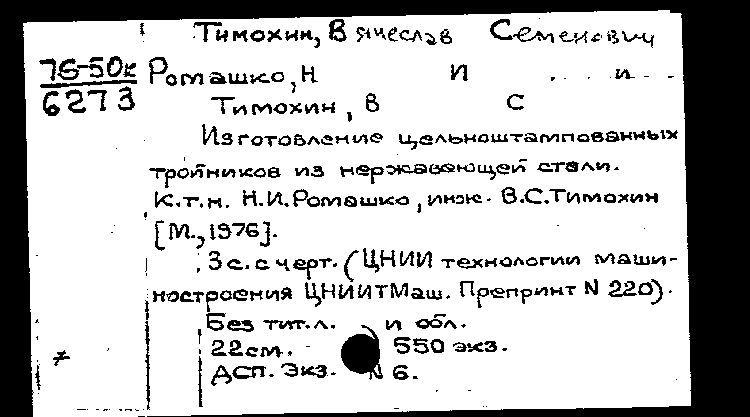 Тимохин, Вячеслав Семенович
76-50к Ромашко, Н И . . . и . . .
6273 Тимохин, В С
Изготовление цельноштампованных
тройников из нержавеющей стали.
К.т.н. Н.И.Ромашко, инж. В.С.Тимохин
[М., 1976].
3 с. с черт. (ЦНИИ технологии маши-
ностроения ЦНИИТМаш. Препринт N 220).
Без тит.л. и обл.
22см. 550 экз.
ДСП. Экз. N 6.